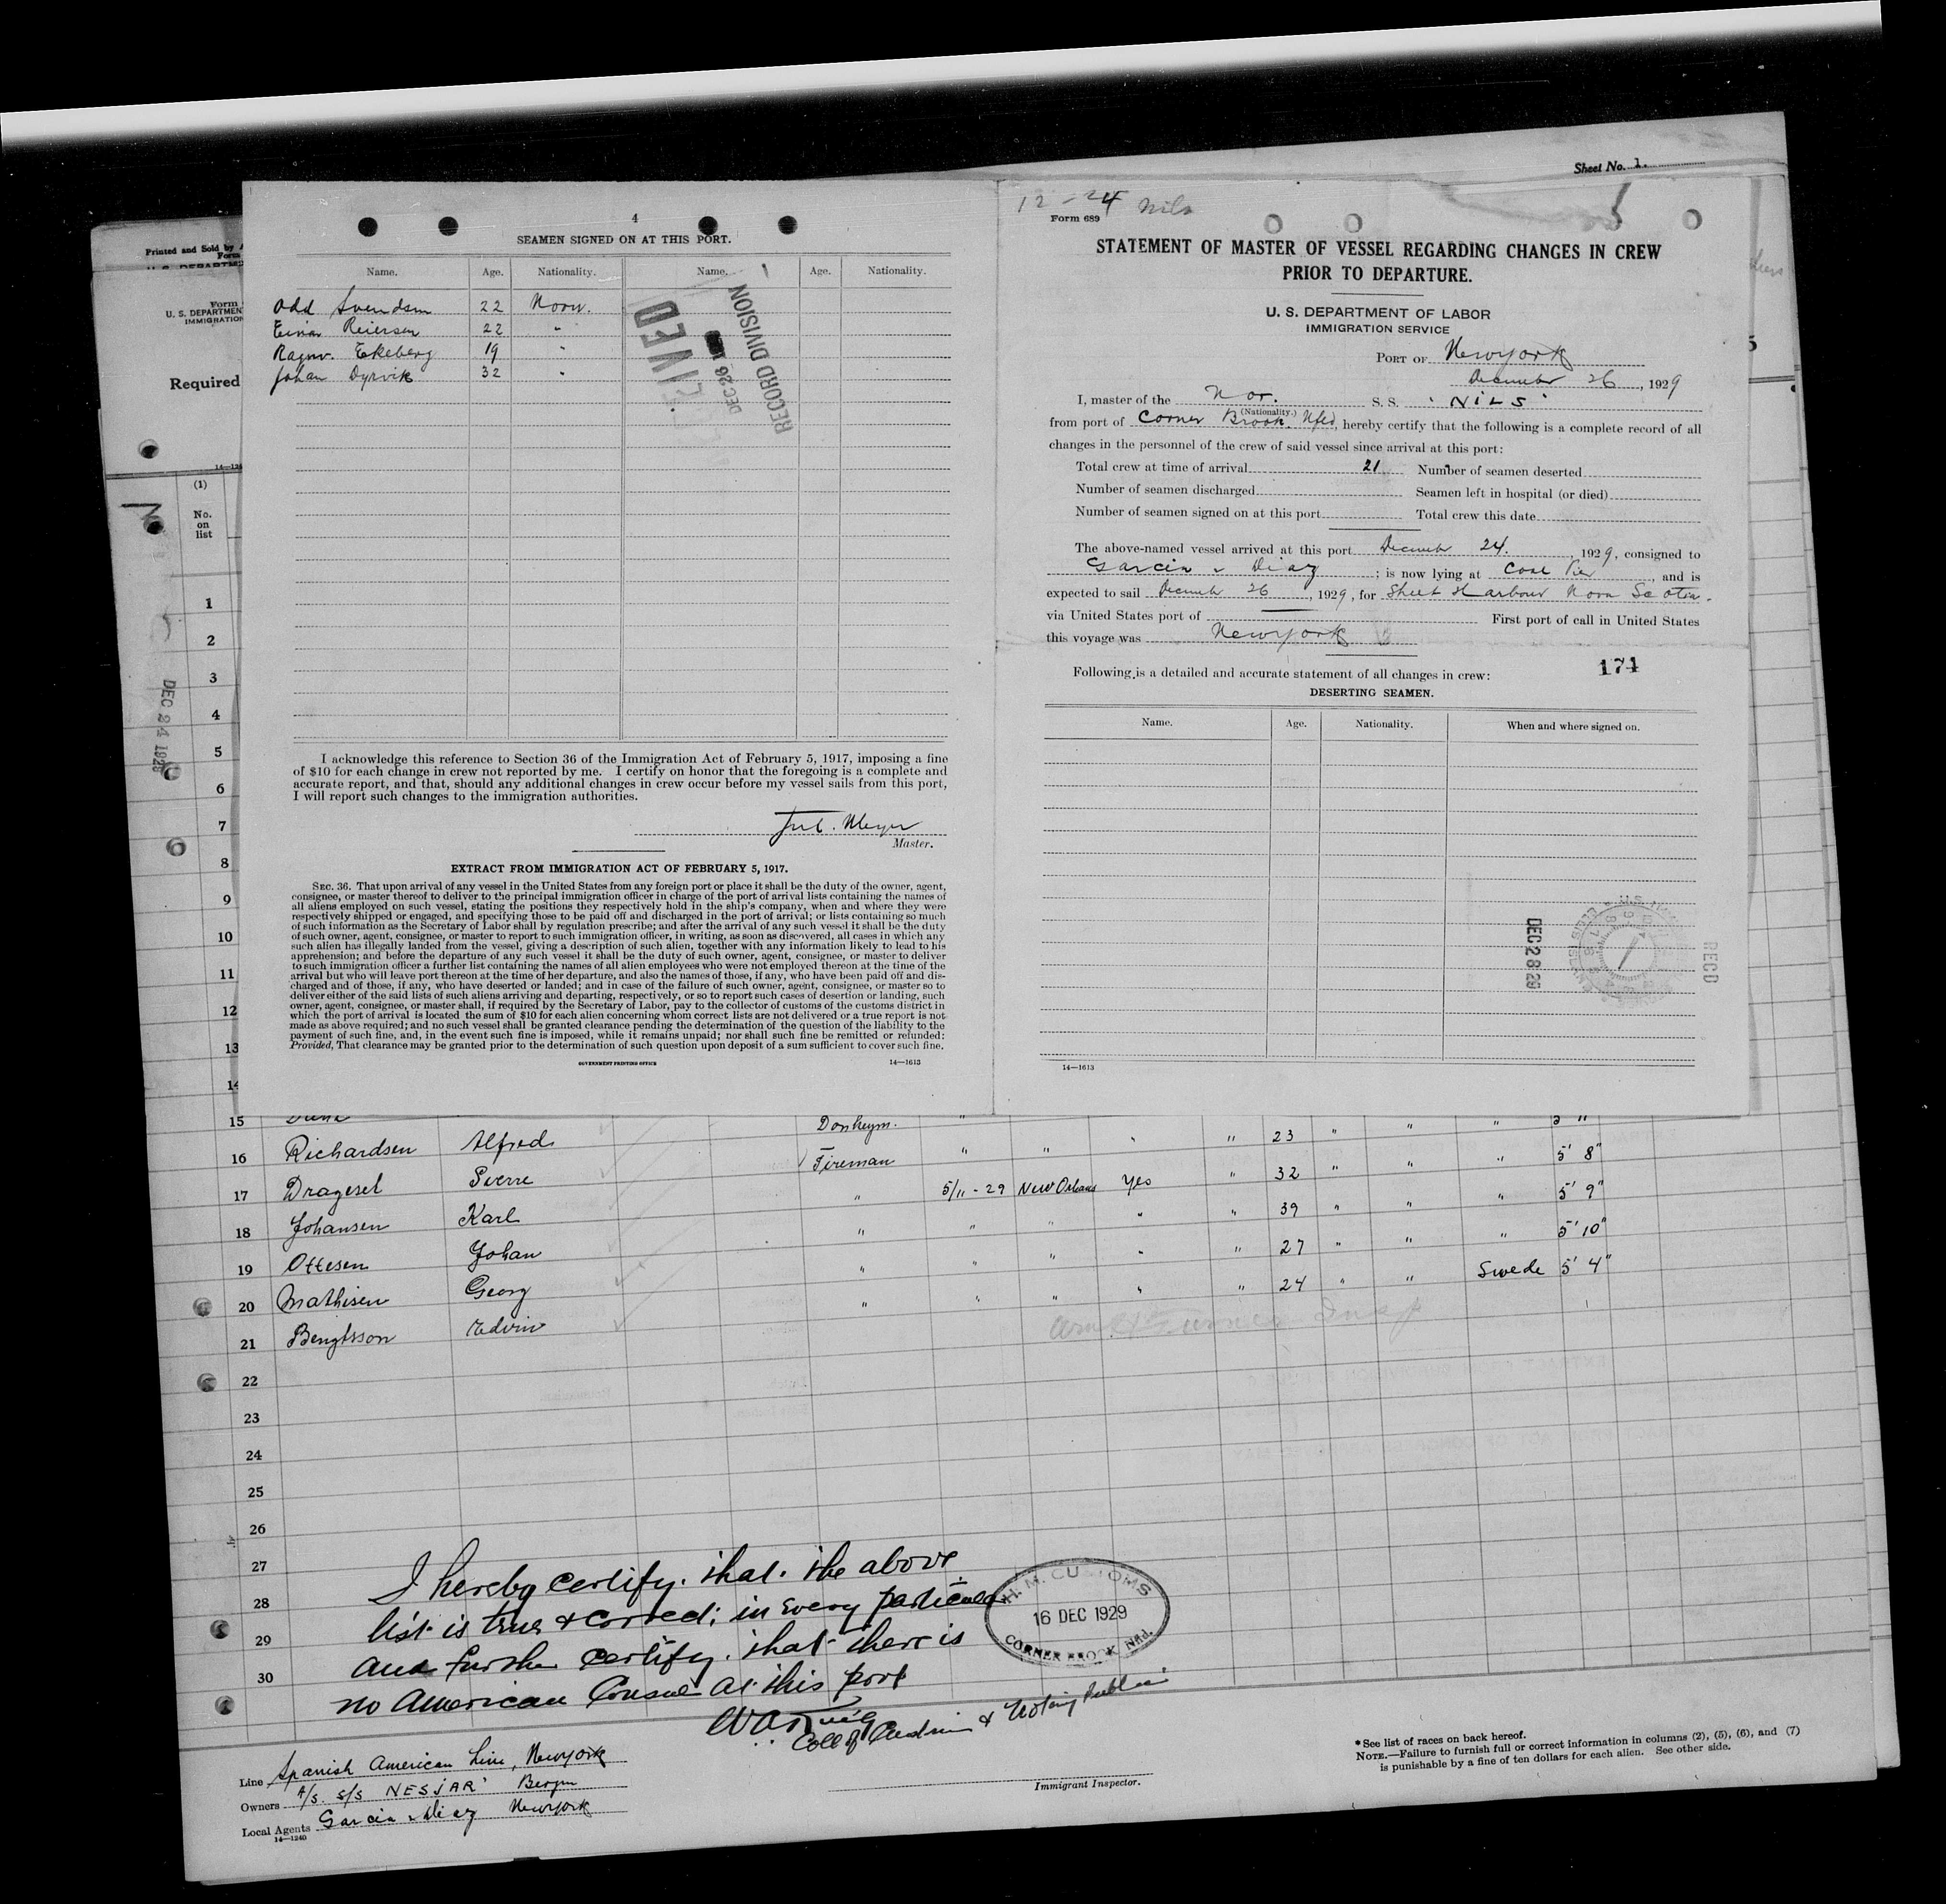 Sheet No. 1.
Printed and Sold by
Form
U. S. DEPARTMENT
IMMIGRATION
Required
14—124
(1)
No.
on
list
DEC 24 1929
1
2
3
4
5
6
7
8
9
10
11
12
13
14
4
SEAMEN SIGNED ON AT THIS PORT.
Name. Age. Nationality. Name. Age. Nationality.
Odd Svendsen 22 Norw.
Einar Reiersen 22 "
Ragnv. Ekeberg 19 "
Johan Dyrvik 32 "
DEC 26
RECORD DIVISION
I acknowledge this reference to Section 36 of the Immigration Act of February 5, 1917, imposing a fine
of $10 for each change in crew not reported by me. I certify on honor that the foregoing is a complete and
accurate report, and that, should any additional changes in crew occur before my vessel sails from this port,
I will report such changes to the immigration authorities.
Meyer
Master.
EXTRACT FROM IMMIGRATION ACT OF FEBRUARY 5, 1917.
SEC. 36. That upon arrival of any vessel in the United States from any foreign port or place it shall be the duty of the owner, agent,
consignee, or master thereof to deliver to the principal immigration officer in charge of the port of arrival lists containing the names of
all aliens employed on such vessel, stating the positions they respectively hold in the ship's company, when and where they were
respectively shipped or engaged, and specifying those to be paid off and discharged in the port of arrival; or lists containing so much
of such information as the Secretary of Labor shall by regulation prescribe; and after the arrival of any such vessel it shall be the duty
of such owner, agent, consignee, or master to report to such immigration officer, in writing, as soon as discovered, all cases in which any
such alien has illegally landed from the vessel, giving a description of such alien, together with any information likely to lead to his
apprehension; and before the departure of any such vessel it shall be the duty of such owner, agent, consignee, or master to deliver
to such immigration officer a further list containing the names of all alien employees who were not employed thereon at the time of the
arrival but who will leave port thereon at the time of her departure, and also the names of those, if any, who have been paid off and dis-
charged and of those, if any, who have deserted or landed; and in case of the failure of such owner, agent, consignee, or master so to
deliver either of the said lists of such aliens arriving and departing, respectively, or so to report such cases of desertion or landing, such
owner, agent, consignee, or master shall, if required by the Secretary of Labor, pay to the collector of customs of the customs district in
which the port of arrival is located the sum of $10 for each alien concerning whom correct lists are not delivered or a true report is not
made as above required; and no such vessel shall be granted clearance pending the determination of the question of the liability to the
payment of such fine, and, in the event such fine is imposed, while it remains unpaid; nor shall such fine be remitted or refunded:
Provided, That clearance may be granted prior to the determination of such question upon deposit of a sum sufficient to cover such fine.
GOVERNMENT PRINTING OFFICE 14—1613
12-24 Nils
Form 689
STATEMENT OF MASTER OF VESSEL REGARDING CHANGES IN CREW
PRIOR TO DEPARTURE.
U. S. DEPARTMENT OF LABOR
IMMIGRATION SERVICE
PORT OF New York
December 26, 1929
I, master of the Nor. S. S. "NILS"
(Nationality.)
from port of Corner Brook Nfld, hereby certify that the following is a complete record of all
changes in the personnel of the crew of said vessel since arrival at this port:
Total crew at time of arrival 21 Number of seamen deserted
Number of seamen discharged Seamen left in hospital (or died)
Number of seamen signed on at this port Total crew this date
The above-named vessel arrived at this port December 24., 1929, consigned to
Garcia & Diaz; is now lying at Coal Pier, and is
expected to sail December 26, 1929, for Sheet Harbour Nova Scotia.
via United States port of First port of call in United States
this voyage was New York
174
Following is a detailed and accurate statement of all changes in crew:
DESERTING SEAMEN.
Name. Age. Nationality. When and where signed on.
DEC 28 29
RECD
14—1613
15 Donkeym. " " " 23 " " " 5 11
16 Richardsen Alfred Fireman " " " 32 " " " 5' 8"
17 Dragesel Sverre " 5/11-29 New Orleans Yes " 39 " " " 5' 9"
18 Johansen Karl " " " " " 27 " " " 5' 10"
19 Ottesen Johan " " " " " 24 " " Swede 5' 4"
20 Mathisen Georg " " " "
21 Bengtsson Edvin
22
23
24
25
26
27
28
29
30
I hereby certify that the above
list is true & correct in every particular
and further certify that there is
no American Consul at this port
Coll of Customs & Notary Public
H. M. CUSTOMS
16 DEC 1929
CORNER BROOK Nfld.
Line Spanish American Line, New York
Owners A/S. S/S "NESJAR" Bergen
Local Agents Garcia & Diaz New York
14—1240
Immigrant Inspector.
* See list of races on back hereof.
NOTE.—Failure to furnish full or correct information in columns (2), (5), (6), and (7)
is punishable by a fine of ten dollars for each alien. See other side.